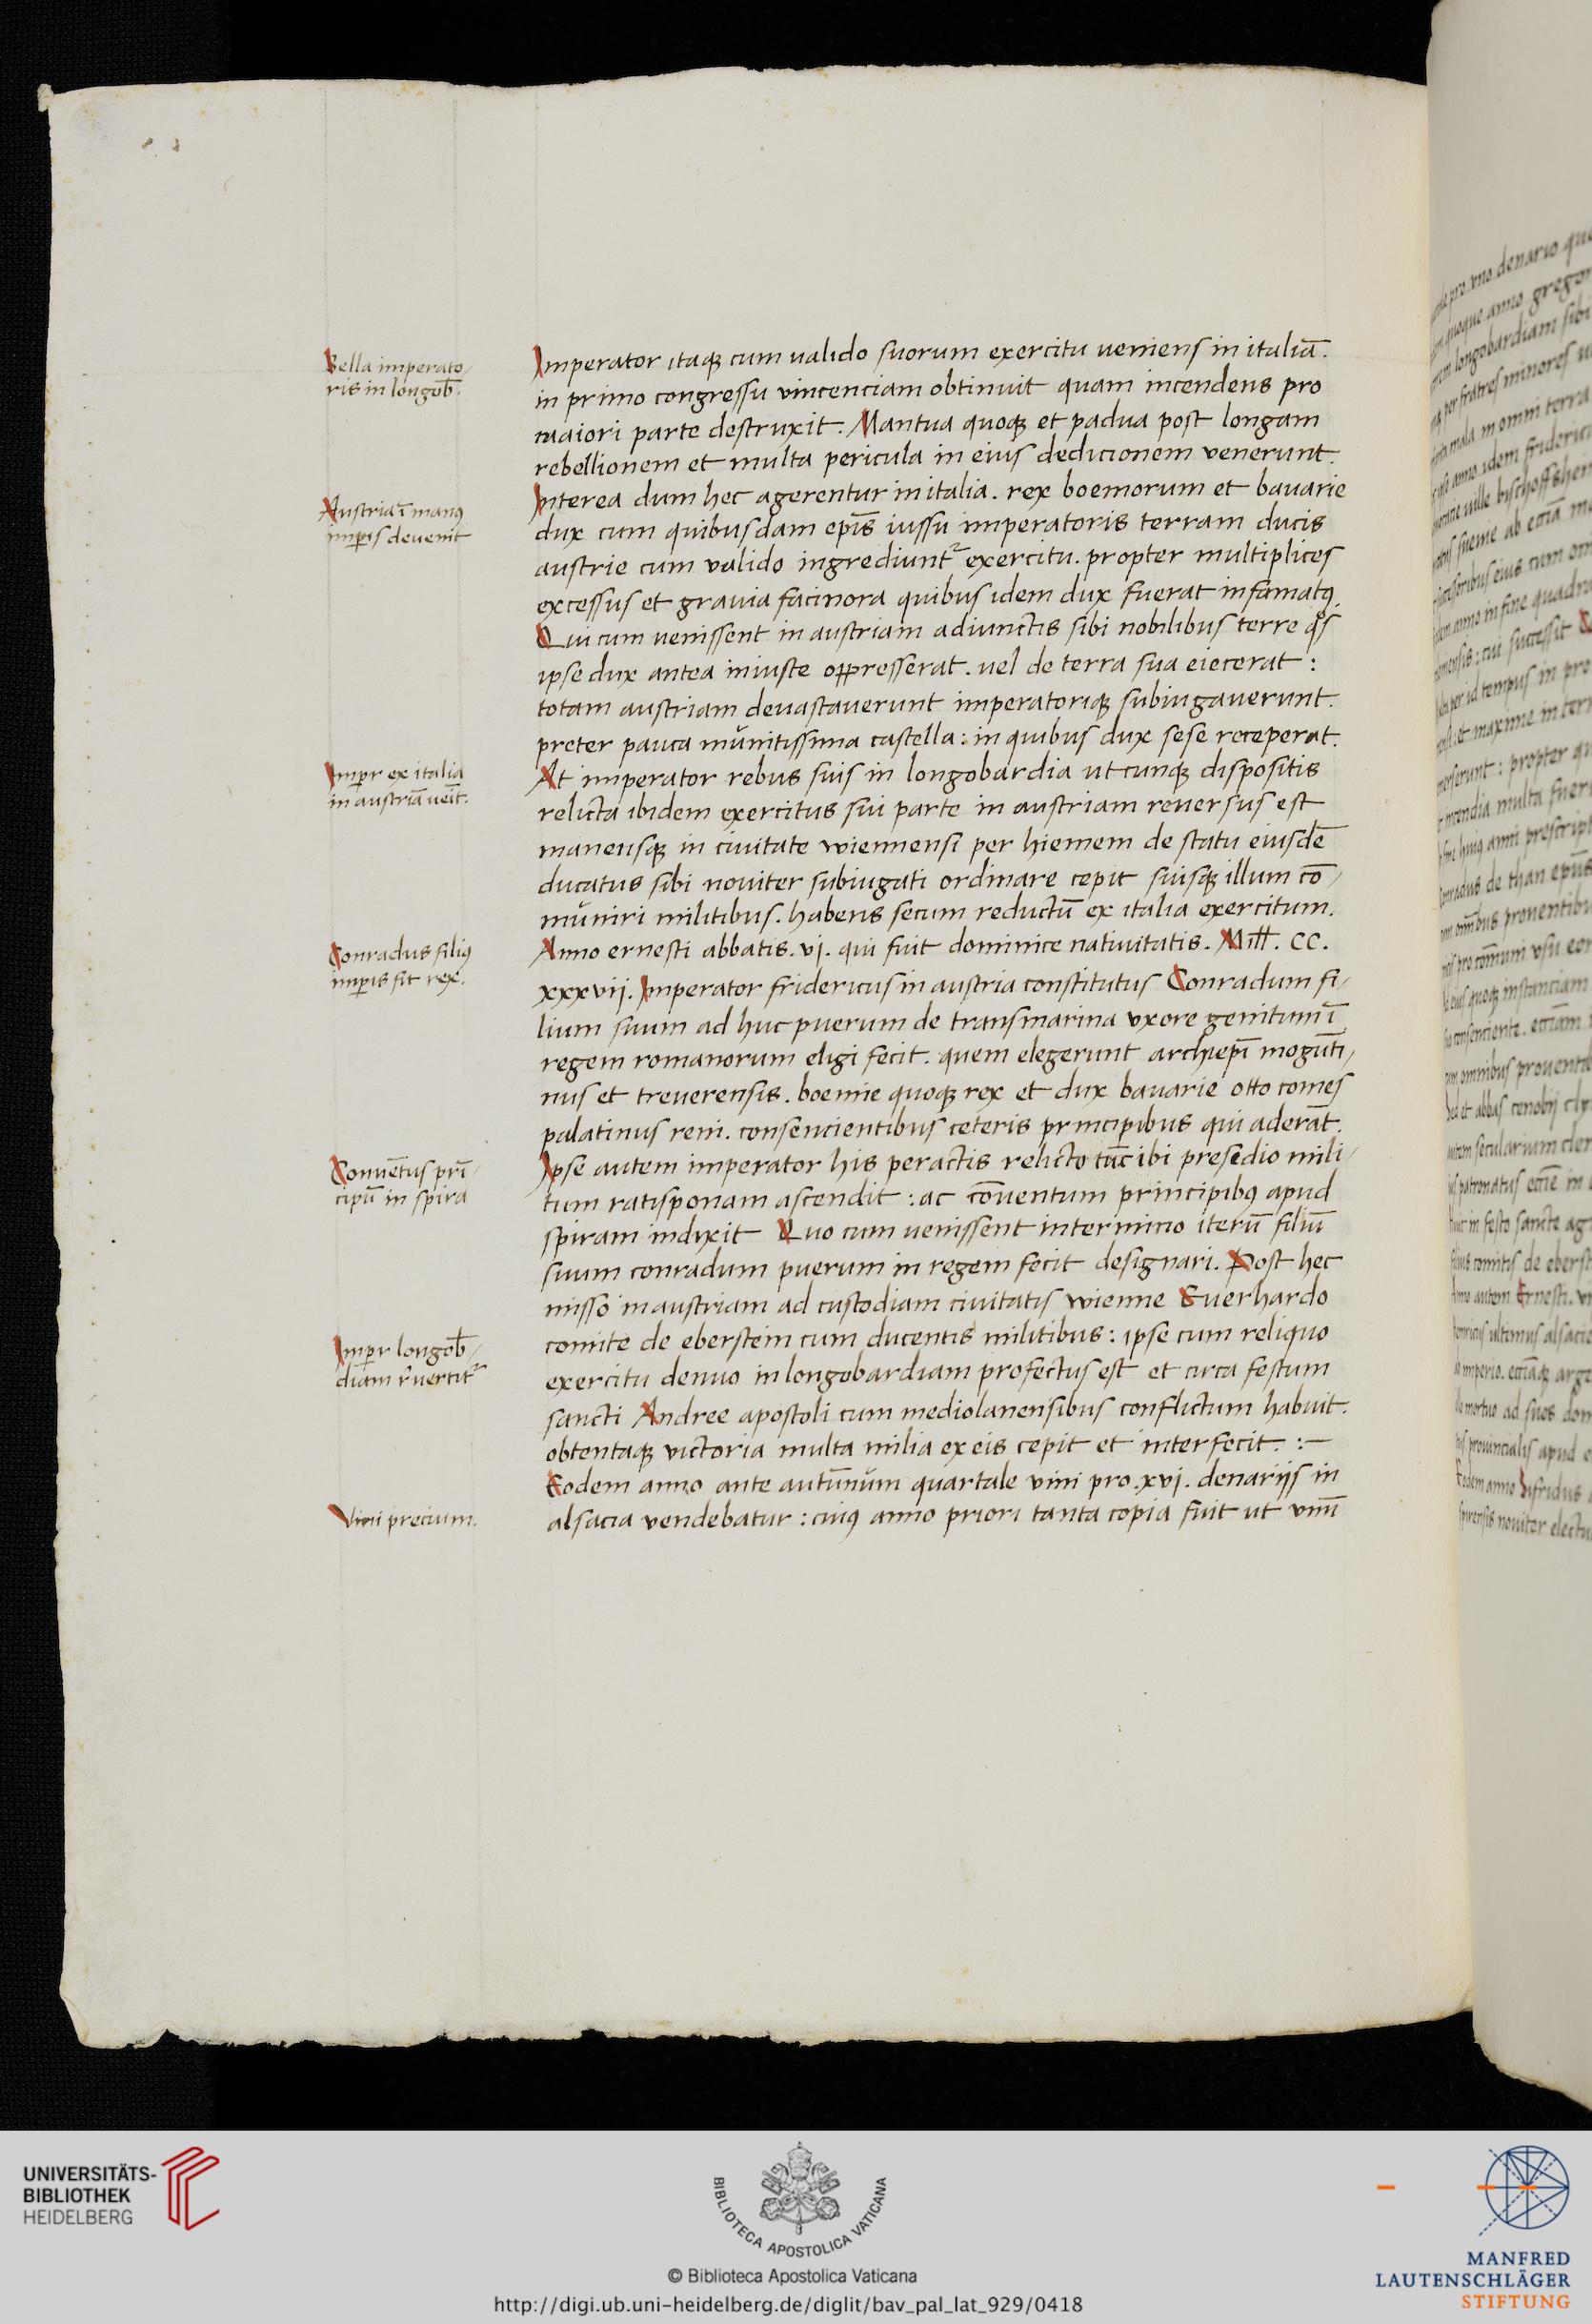 Bella imperato/
ris in longob̄.
Imperator itaqꝫ cum valido suorum exercitu veniens in italiā.
in primo congressu vincenciam obtinuit quam incendens pro
maiori parte destruxit. Mantua quoqꝫ et padua post longam
rebellionem et multa pericula in eius dedicionem venerunt.
Interea dum hec agerentur in italia. rex boemorum et bavarie
dux cum quibusdam ep̄is iussu imperatoris terram ducis
austrie cum valido ingrediunt᷑ exercitu. propter multiplices
excessus et gravia facinora quibus idem dux fuerat infamatꝰ.
Qui cum venissent in austriam adiunctis sibi nobilibus terre qͦs
ipse dux antea iniuste oppresserat. vel de terra sua eiecerat :
totam austriam devastaverunt imperatoriqꝫ subiugaverunt.
preter pauca munitissima castella : in quibus dux sese receperat.
Austria ī manꝰ
imꝑis devenit
At imperator rebus suis in longobardia utcunqꝫ dispositis
relicta ibidem exercitus sui parte in austriam reversus est
manensqꝫ in civitate wiennensi per hiemem de statu eiusdē
ducatus sibi noviter subiugati ordinare cepit suisqꝫ illum cō/
muniri militibus. habens secum reductū ex italia exercitum.
Imꝑr ex italia
in austriā veīt.
Anno ernesti abbatis. vj. qui fuit dominice nativitatis. Mill̄. CC.
xxxvij. Imperator fridericus in austria constitutus Conradum fi/
lium suum ad huc puerum de transmarina uxore genitum ī
regem romanorum eligi fecit. quem elegerunt archiep̄i mogūti/
nus et treverensis. boemie quoqꝫ rex et dux bavarie otto comes
palatinus reni. consencientibus ceteris principibus qui aderāt.
Conradus filiꝰ
imꝑis fit rex.
Ipse autem imperator his peractis relicto tūc ibi presedio mili/
tum ratisponam ascendit : ac cōventum principibꝰ apud
spiram indixit Quo cum venissent intermicio iterū filiū
suum conradum puerum in regem fecit designari. Post hec
misso in austriam ad custodiam civitatis wienne Everhardo
comite de eberstein cum ducentis militibus : ipse cum reliquo
exercitu denuo in longobardiam profectus est et circa festum
sancti Andree apostoli cum mediolanensibus conflictum habuit.
obtentaqꝫ victoria multa milia ex eis cepit et interfecit. :—
Convētus prī/
cipū in spira
Imꝑr longob̄/
diam rͤvertit᷑
Eodem anno ante autūnum quartale vini pro .xvj. denarijs in
alsacia vendebatur : cuiꝰ anno priori tanta copia fuit ut vnū
Vini precium.
UNIVERSITÄTS-
BIBLIOTHEK
HEIDELBERG
BIBLIOTECA APOSTOLICA VATICANA
© Biblioteca Apostolica Vaticana
http://digi.ub.uni-heidelberg.de/diglit/bav_pal_lat_929/0418
MANFRED
LAUTENSCHLÄGER
STIFTUNG